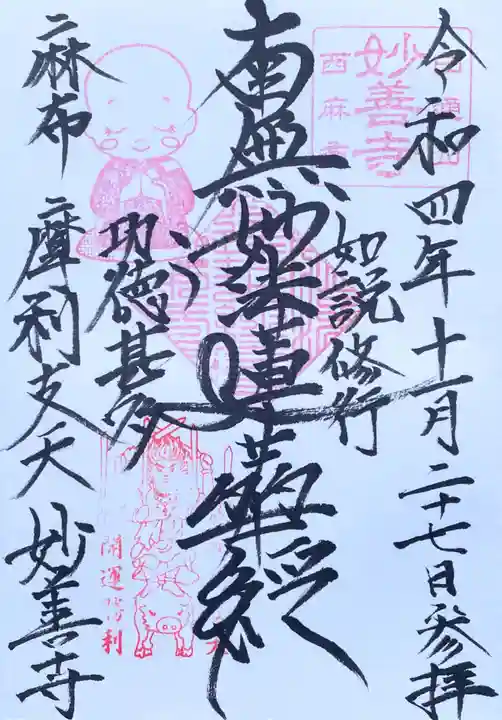 令和四年十一月二十七日参拝
如説修行
南無妙法蓮華経
功徳甚多
麻布 摩利支天 妙善寺
妙善寺
西麻
開運勝利